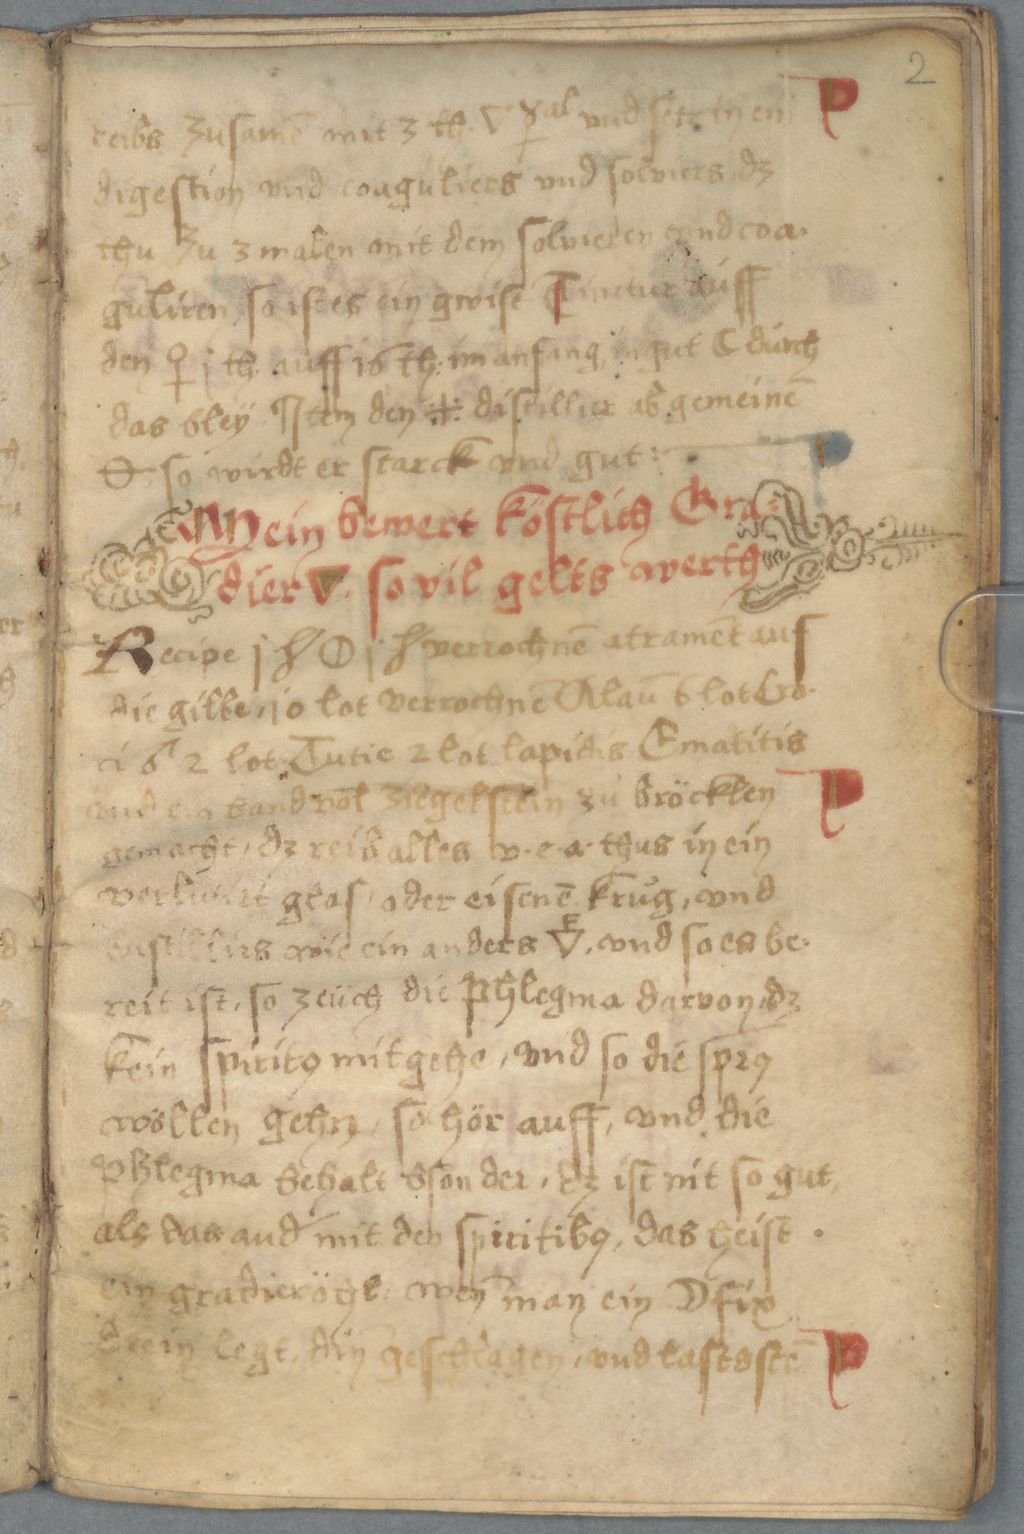 2
reibs zusamē mit 3 lb. 🜄 und setz in ein
digestion vnd coaguliers vnd solviers, dz
thu Zu 3 malen mit dem solvieren vnd coa-
guliren, so ist es ein gwise Tinctur auff
den ♀ j lb. auff 16 lb. im anfang, in gut ☾ durch
das bley Jtem den distillier ab gemeinē
so wirdt er starck vnd gut:
Mein bewert köstlich Gra-
dier 🜄. so vil gelts werth
Recipe j verrochnē atrament auf
die gilbe, 10 lot verrochnē Alaū 6 lot Cro-
ci 2 lot Tutie 2 lot lapidis Ematitis
vnd ein hand vol Ziegelstein zu bröcklen
gemacht, dz reib alles v. e. a. thus in ein
verlutirt glas, oder eisenē krug, vnd
distillirs wie ein anders 🜄, vnd so es be-
reit ist, so zeüch die Phlegma darvon, dz
kein spirit9 mitgehe, vnd so die spr9
wöllen gehn, so hör auff, vnd die
Phlegma behalt bsonder, dz ist nit so gut,
als das and mit den spiritib9, das heist
ein gradieröhl. wen man ein ☽ fix
drein legt, din geschlagen, vnd lasts stē